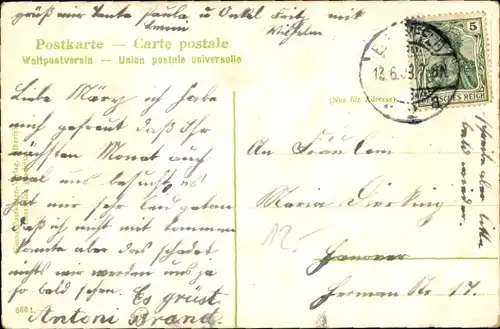 grüß mir Tante Paula u Onkel Fritz mit
Emmi Wilhelm
Postkarte — Carte postale
Weltpostverein — Union postale universelle
Liebe März ich habe
mich gefreut daß Ihr
nächsten Monat auch
mal uns besucht es
hat mir sehr Leid getan
daß ich nicht mit kommen
konnte aber das schadet
nichts wir werden uns ja
so bald sehen. Es grüst
Antoni Brand.
6661.
5
DEUTSCHES REICH
13.6.09
(Nur für Adresse)
schreibe aber bitte
bald wieder.
An Fräulein
Maria Dierking
12.-
Hanover
Herman Str 17.